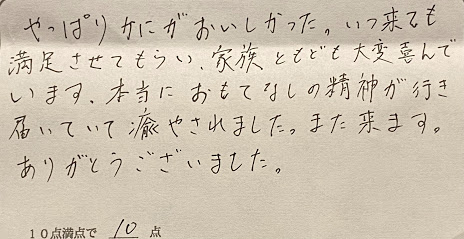 やっぱりかにがおいしかった。いつ来ても
満足させてもらい、家族ともども大変喜んで
います、本当におもてなしの精神が行き
届いていて癒やされました。また来ます。
ありがとうございました。
10点満点で 10 点